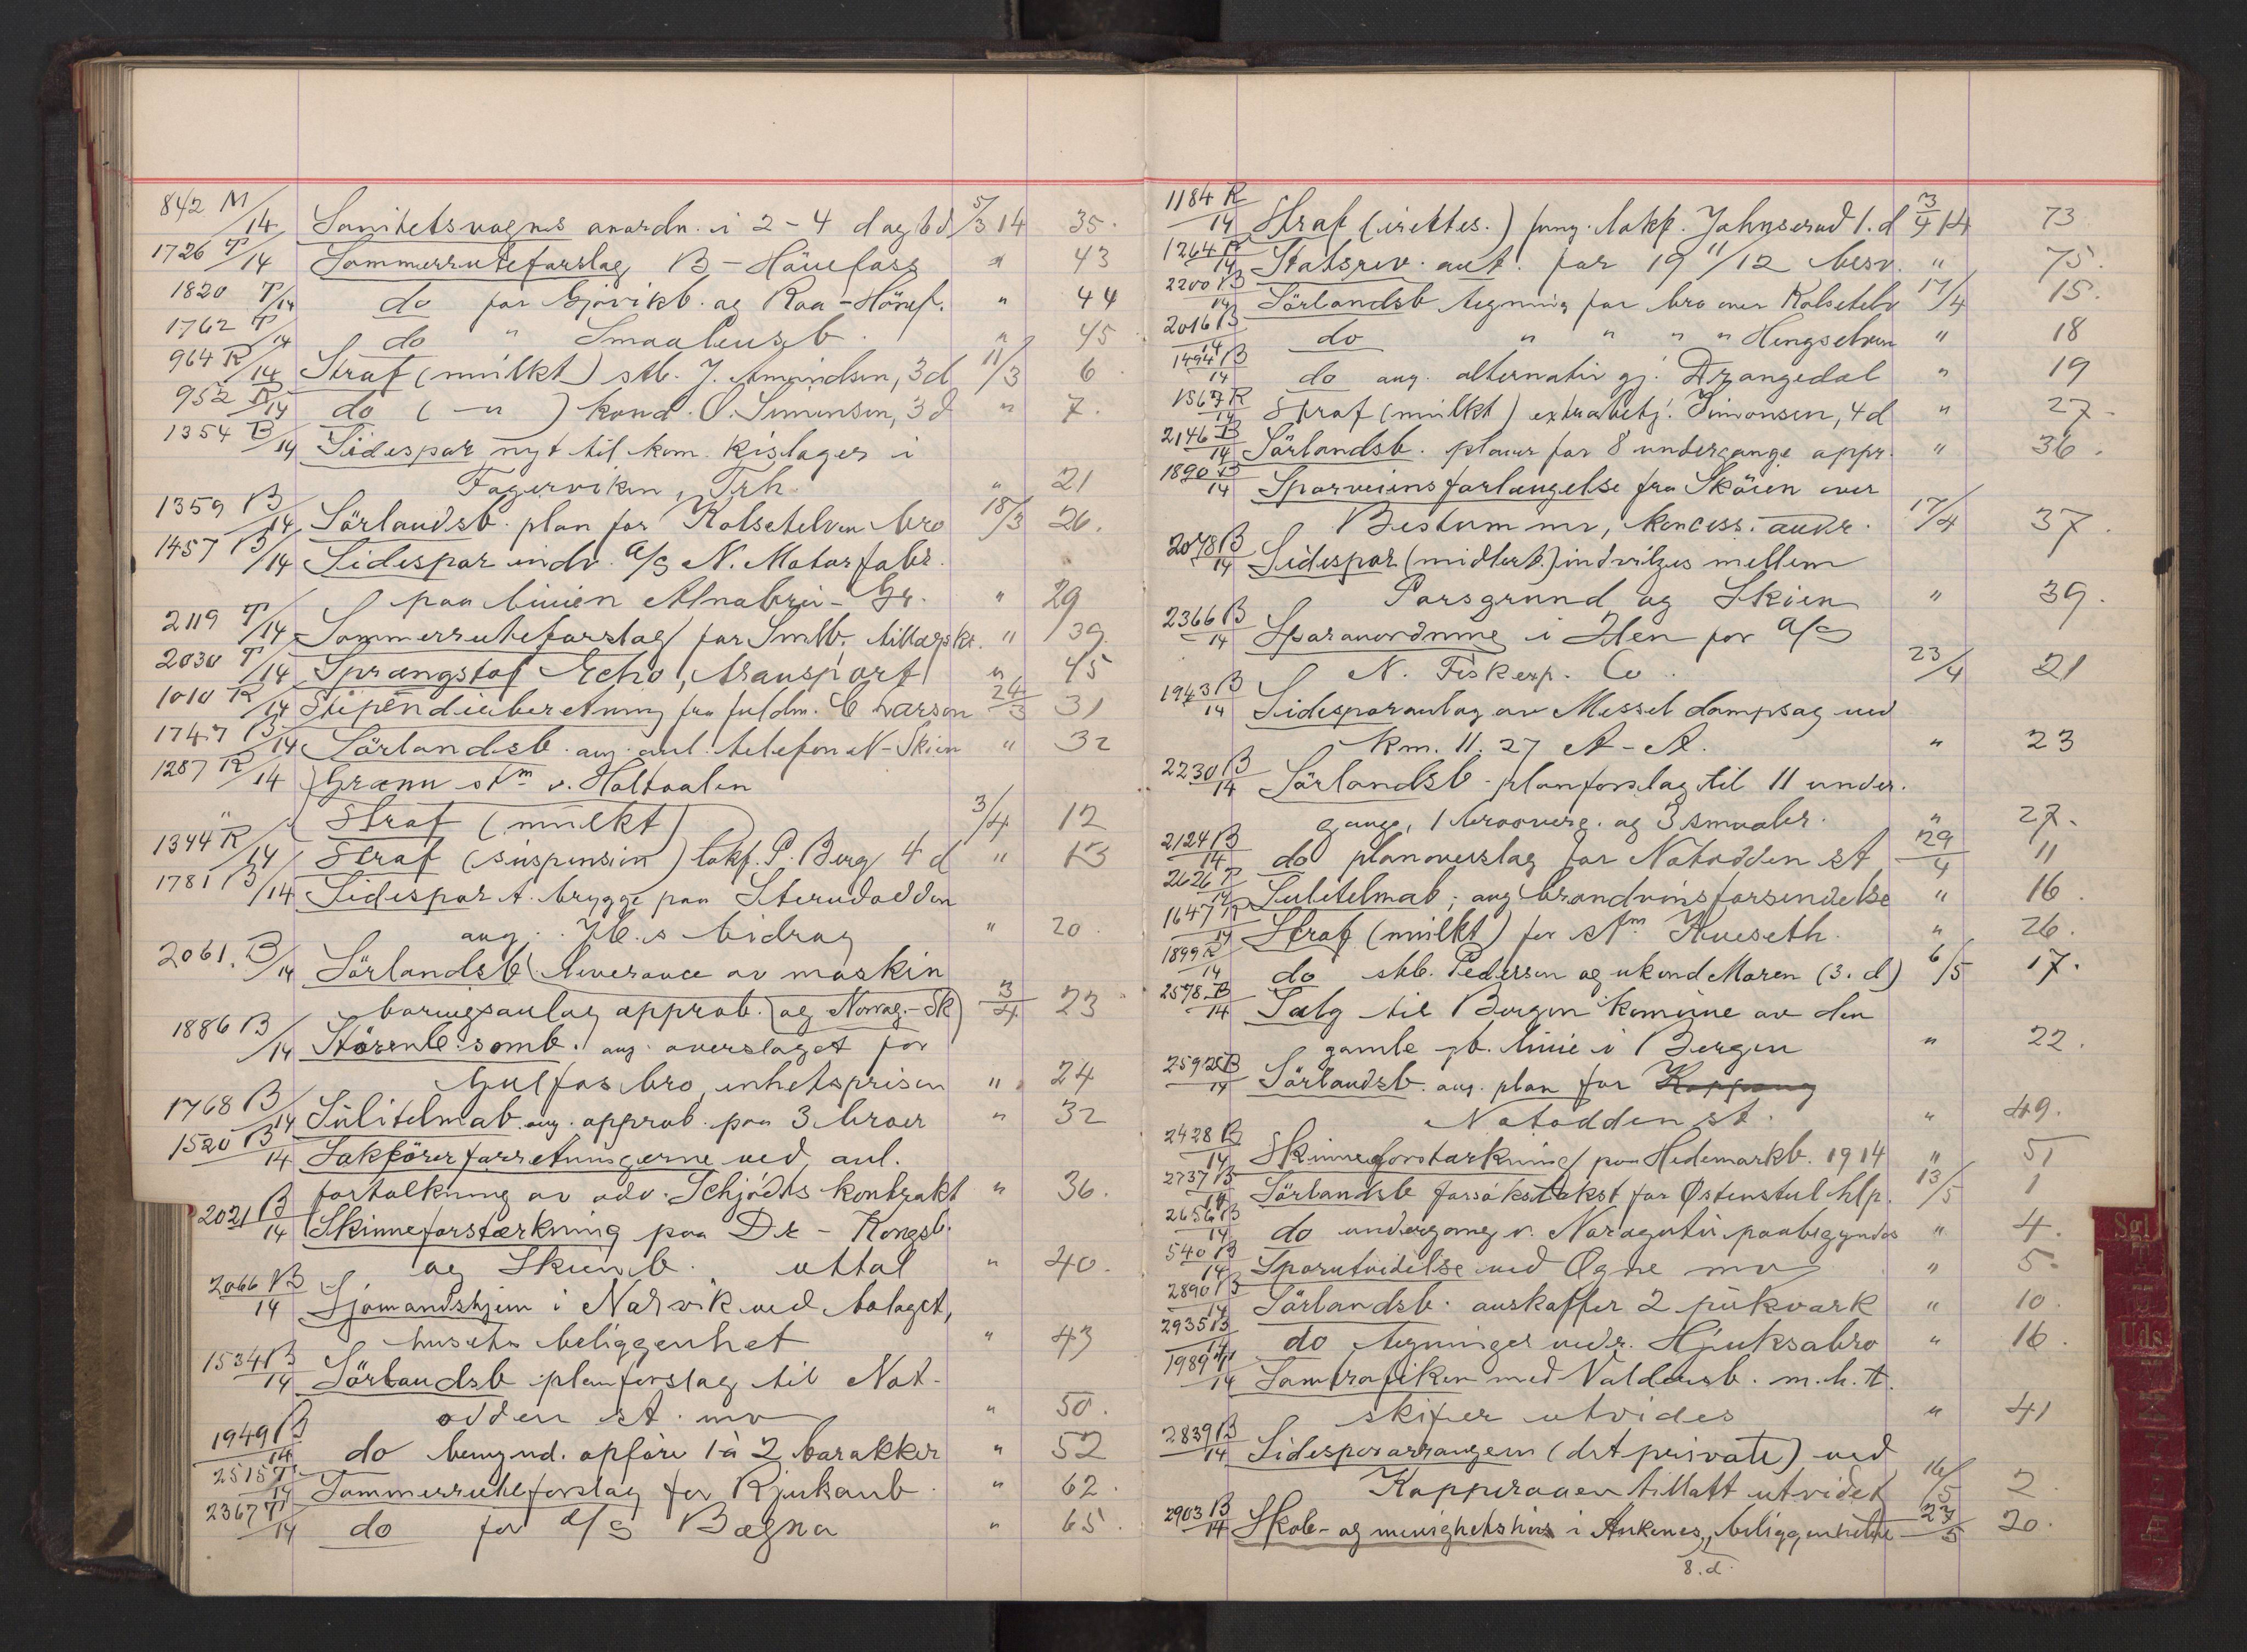 842 M/14 Sanitetsvogns anordn. i 2-4 dagtd 5/3 14 35.
1726 T/14 Sommerruteforslag B-Hönefoss " 43
1820 T/14 do for Gjövikb. og Roa-Hönef. " 44
1762 T/14 do " Smaalensb. " 45
964 R/14 Straf (mulkt) stb. J. Amundsen, 3 d 11/3 6
952 R/14 do ( - " ) kond. O. Simensen, 3 d " 7.
1354 B/14 Sidespor nyt til kom. kislager i
Fagerviken, Trh. " 21
1359 B/14 Sörlandsb. plan for Kolsetelven bro 18/3 26.
1457 B/14 Sidespor indv. A/S N. Motorfabr.
paa linien Alnabru-Gr. " 29
2119 T/14 Sommerruteforslag for Smlb. tillægskr. " 39.
2030 T/14 Sprængstof Echo, transport " 45
1010 R/14 Stipendieberetning fra fuldm. C Larsen 24/3 31
1747 B/14 Sörlandsb. ang. anl. telefon N-Skien " 32
1287 R/14 Grænn stm v. Holtaalen
" Straf (mulkt) 3/4 12
1344 R/14 Straf (suspension) lokf. P. Berg 4 d " 13
1781 B/14 Sidespor t. brygge paa Sterudodden
ang. H.s bidrag " 20.
2061. B/14 Sörlandsb. leverance av maskin
boringsanlæg approb. (og Norrag.-Sk) 3/4 23
1886 B/14 Störenb. somb. ang. overslaget for
Gulfos bro, enhetsprisen " 24
1768 B/14 Sulitelmab. ang. approb. paa 3 broer " 32
1520 B/14 Sakförerforretningerne ved anl.
fortolkning av adv. Schjödts kontrakt " 36.
2021 B/14 Skinneforstærkning paa Dr - Kongsb.
og Skienb. uttal " 40.
2066 B/14 Sjömandshjem i Narvik ved bolaget,
husets beliggenhet " 43
1534 B/14 Sörlandsb planforslag til Not-
odden st. mv " 50.
1949 B/14 do bemynd. opföre 1 à 2 barakker " 52
2515 T/14 Sommerruteforslag for Rjukanb. " 62.
2367 T/14 do for A/S Bægna " 65.
1184 R/14 Straf (irettes.) fung. lokf. Johnserud 1. d 3/4 14 73
1264 R/14 Statsrev. ant. for 19 11/12 besv. " 75.
2200 B/14 Sörlandsb tegning for bro over Kolsetelv 17/4 15.
2016 B/14 do " " " " Hengselven " 18
1494 B/14 do ang. alternativ gj. Drangedal " 19
1567 R/14 Straf (mulkt) extrabetj. Simonsen, 4 d " 27-
2146 B/14 Sörlandsb. planer for 8 undergange appr. " 36.
1890 B/14 Sporveiens forlængelse fra Sköien over
Bestum mv, koncess. andr. 17/4 37
2078 B/14 Sidespor (midlert.) indvilges mellem
Porsgrund og Skien " 39.
2366 B/14 Sporanordning i Ilen for A/S
N. Fiskerp. Co. 23/4 21
1943 B/14 Sidesporanlæg av Messel dampsag ved
Km. 11.27 A-A. " 23
2230 B/14 Sörlandsb. planforslag til 11 under.
gange, 1 brooverg. og 3 smaabr. " 27.
2124 B/14 do planoverslag for Notodden st 29/4 11
2626 T/14 Sulitelmab; ang brændvinsforsendelse " 16.
1647 R/14 Straf (mulkt) for stm Kveseth. " 26.
1899 R/14 do stb. Pedersen og ukond Moren (3. d) 6/5 17.
2578 B/14 Salg til Bergen komune av den
gamle jb. linie i Bergen " 22.
2592 B/14 Sörlandsb. ang. plan for Koppang
Notodden st. " 49.
2428 B/14 Skinneforstærkning paa Hedemarkb. 1914 " 51
2737 B/14 Sörlandsb forsökstakst for Østenstul hlp. 13/5 1
2656 B/14 do undergang v. Naragutu paabegyndes " 4.
540 B/14 Sporutvidelse ved Ogne mv " 5.
2890 B/14 Sörlandsb. anskaffer 2 pukværk " 10.
2935 B/14 do tegninger vedr. Hjuksabro " 16.
1989 T/14 Samtrafiken med Valdersb. m.h.t.
skifer utvides " 41
2839 B/14 Sidesporarrangem (det private) ved
Kopperaaen tillatt utvidet 16/5 2
2903 B/14 Skole- og menighetshus i Ankenes, beliggenheten 23/5 20.
8.d
Sgl
T
Uds